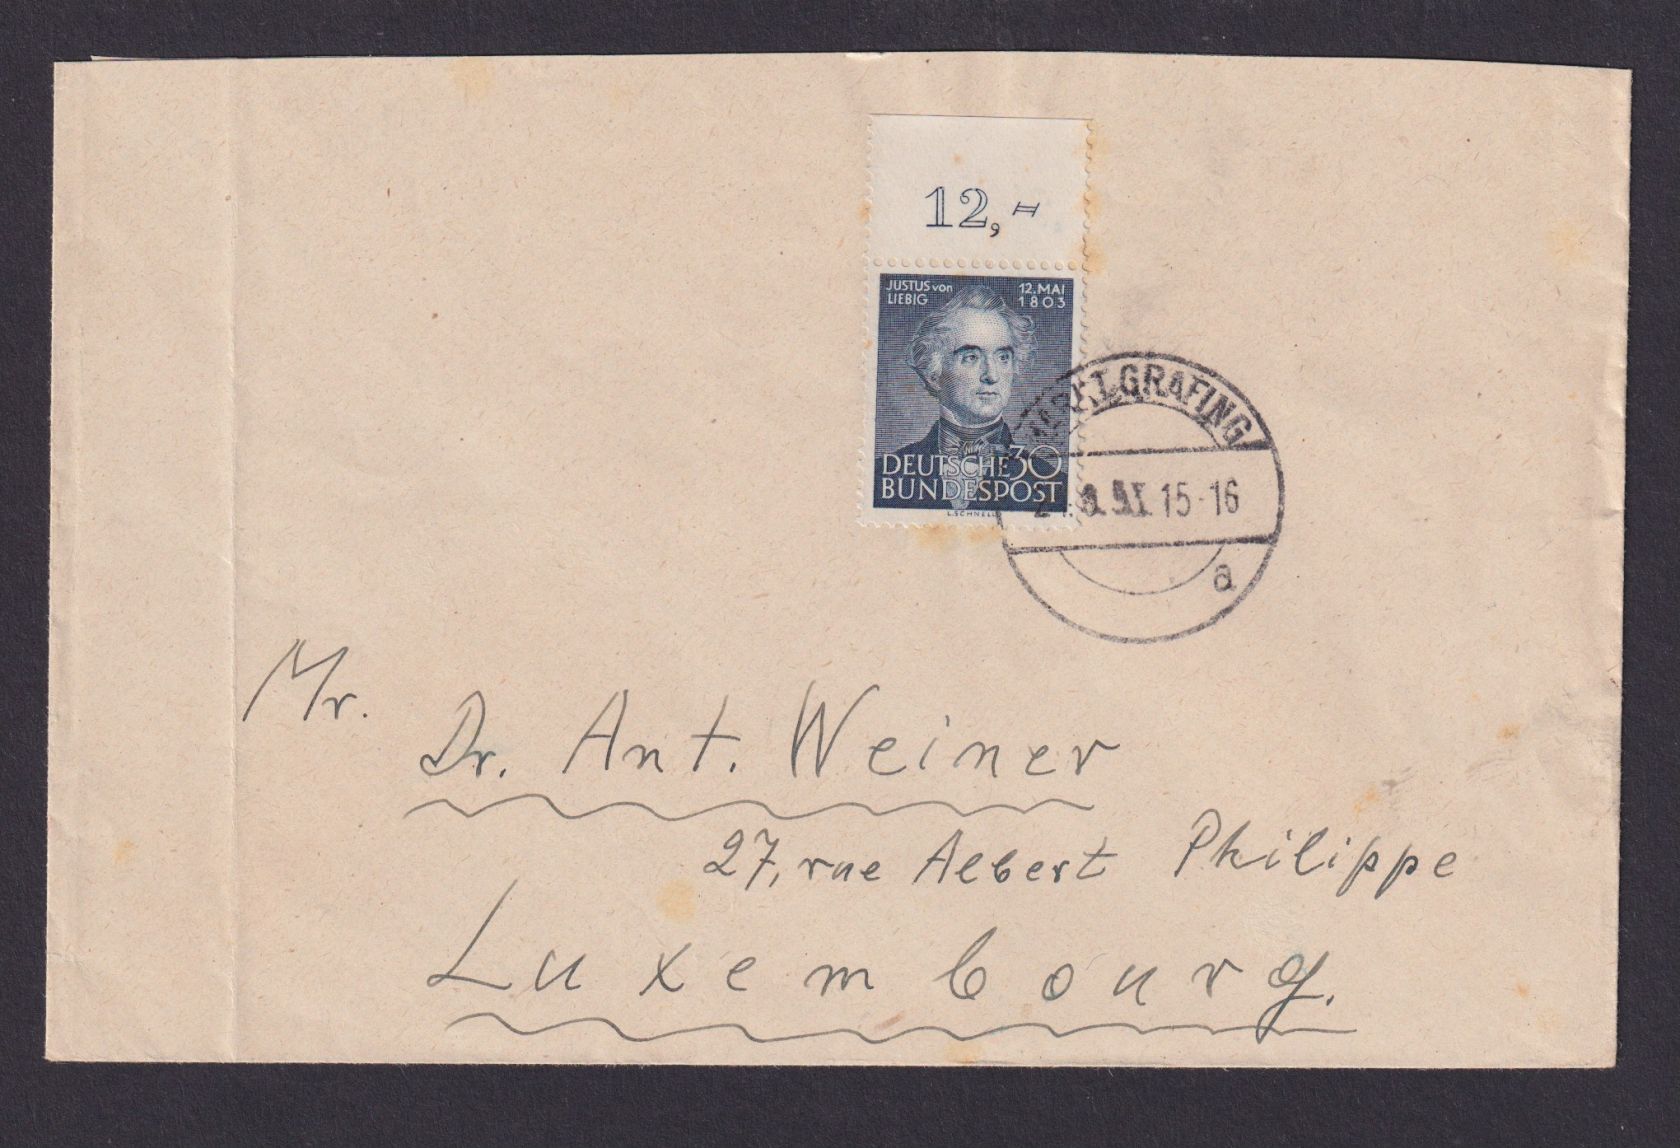 12,-
JUSTUS von
LIEBIG
12.MAI
1803
DEUTSCHE 30
BUNDESPOST
L.SCHNELL
MARKT GRAFING
15-16
a
Mr.
Dr. Ant. Weiner
27, rue Albert Philippe
Luxembourg.